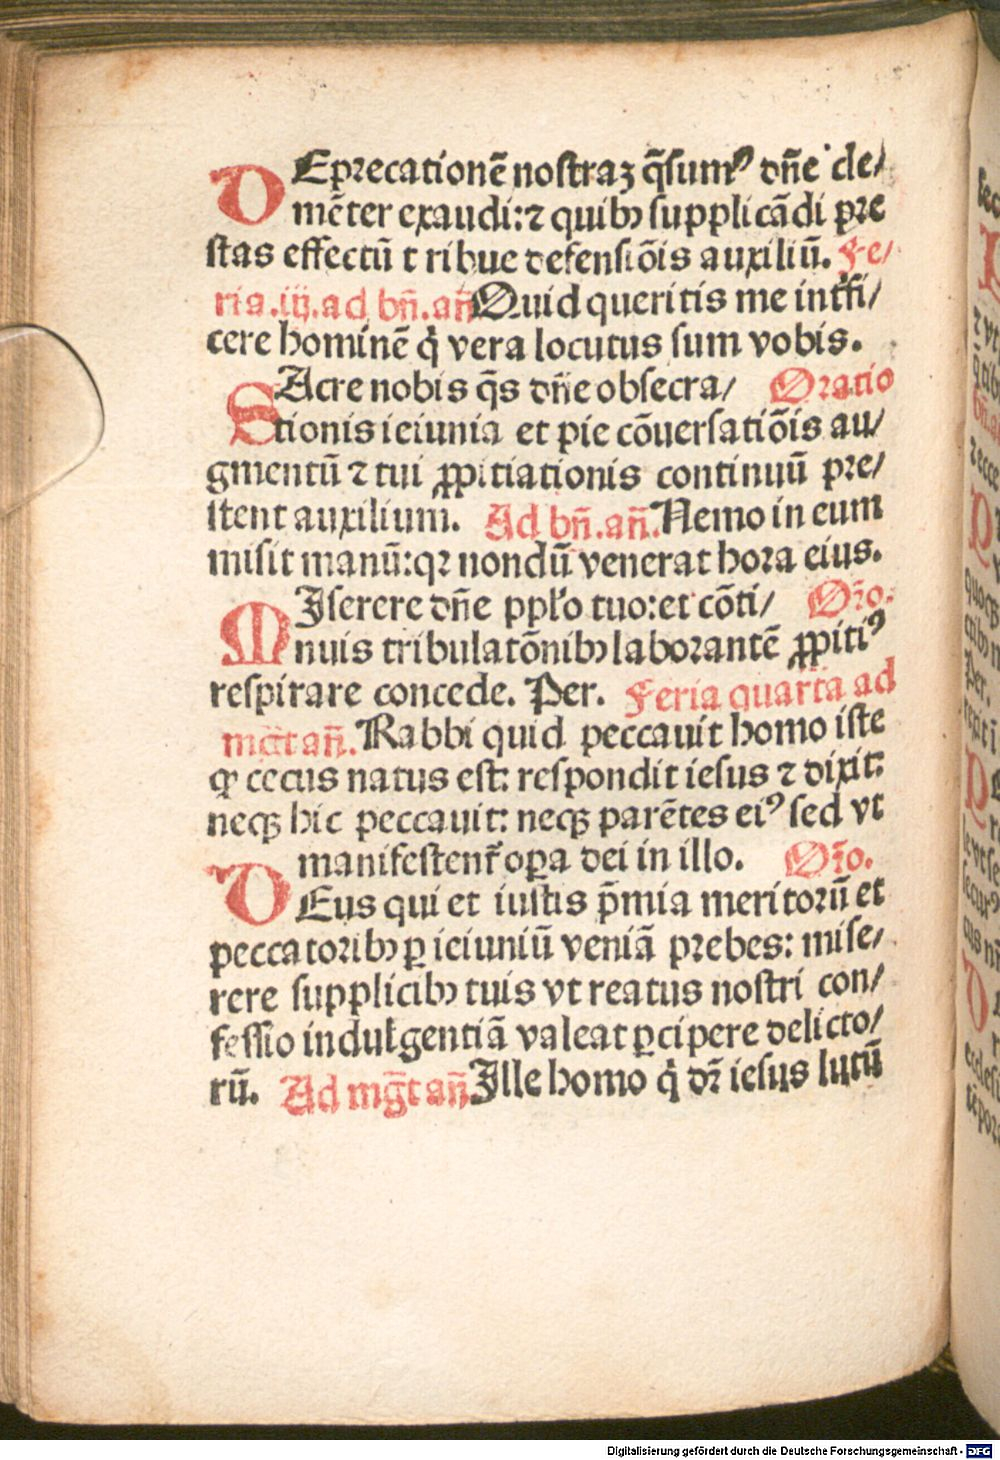 DEprecationē nostraꝫ q̄sumꝰ dn̄e cle/
mēter exaudi: ⁊ quibꝰ supplicādi pre
stas effectū tribue defensiōis auxiliū. Fe/
ria.iij.ad bn̄.an̄ Quid queritis me intr̄fi/
cere hominē q̇ vera locutus sum vobis.
SAcre nobis q̄s dn̄e obsecra/ Oratio
tionis ieiunia et pie cōuersatiōis au/
gmentū ⁊ tui ꝓpitiationis continuū pre/
stent auxilium. Ad bn̄.an̄. Nemo in eum
misit manū: qꝛ nondū venerat hora eius.
MIserere dn̄e ppl'o tuo: et cōti/ Or̄o.
nuis tribulatōnibꝰ laborantē ꝓpitiꝰ
respirare concede. Per. Feria quarta ad
mḡt an̄. Rabbi quid peccauit homo iste
qꝛ cecus natus est: respondit iesus ⁊ dixit:
neqꝫ hic peccauit: neqꝫ parētes eiꝰ sed vt
manifestent᷑ oꝑa dei in illo. Or̄o.
DEus qui et iustis p̄mia meritorū et
peccatoribꝰ ꝑ ieiuniū veniā prebes: mise/
rere supplicibꝰ tuis vt reatus nostri con/
fessio indulgentiā valeat ꝑcipere delicto/
rū. Ad mḡt an̄ Ille homo q̇ dr̄ iesus lutū
secu
Per.
Digitalisierung gefördert durch die Deutsche Forschungsgemeinschaft - DFG